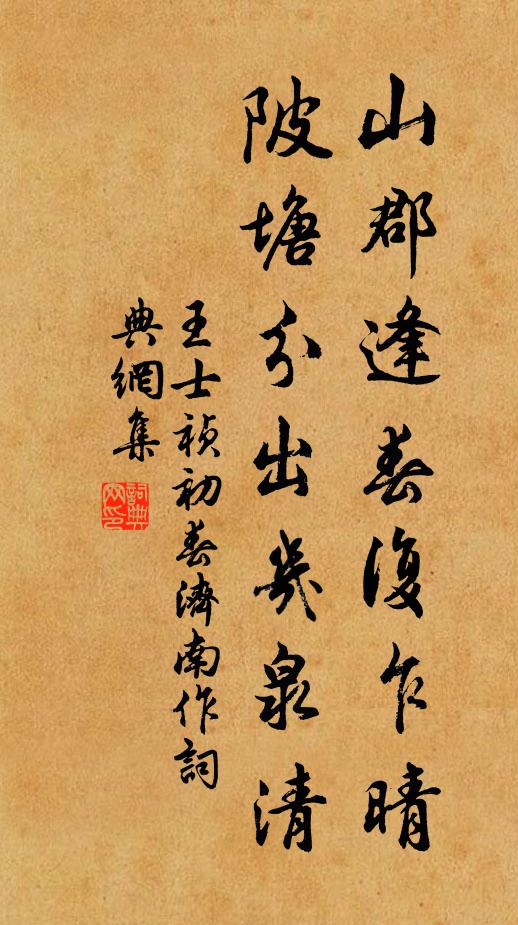 山郡逢春復乍晴
陂塘分出幾泉清
王士禎初春濟南作詞
典網集
詞典
网印